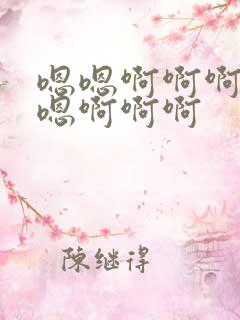 嗯嗯啊啊啊
嗯啊啊啊
陳继得